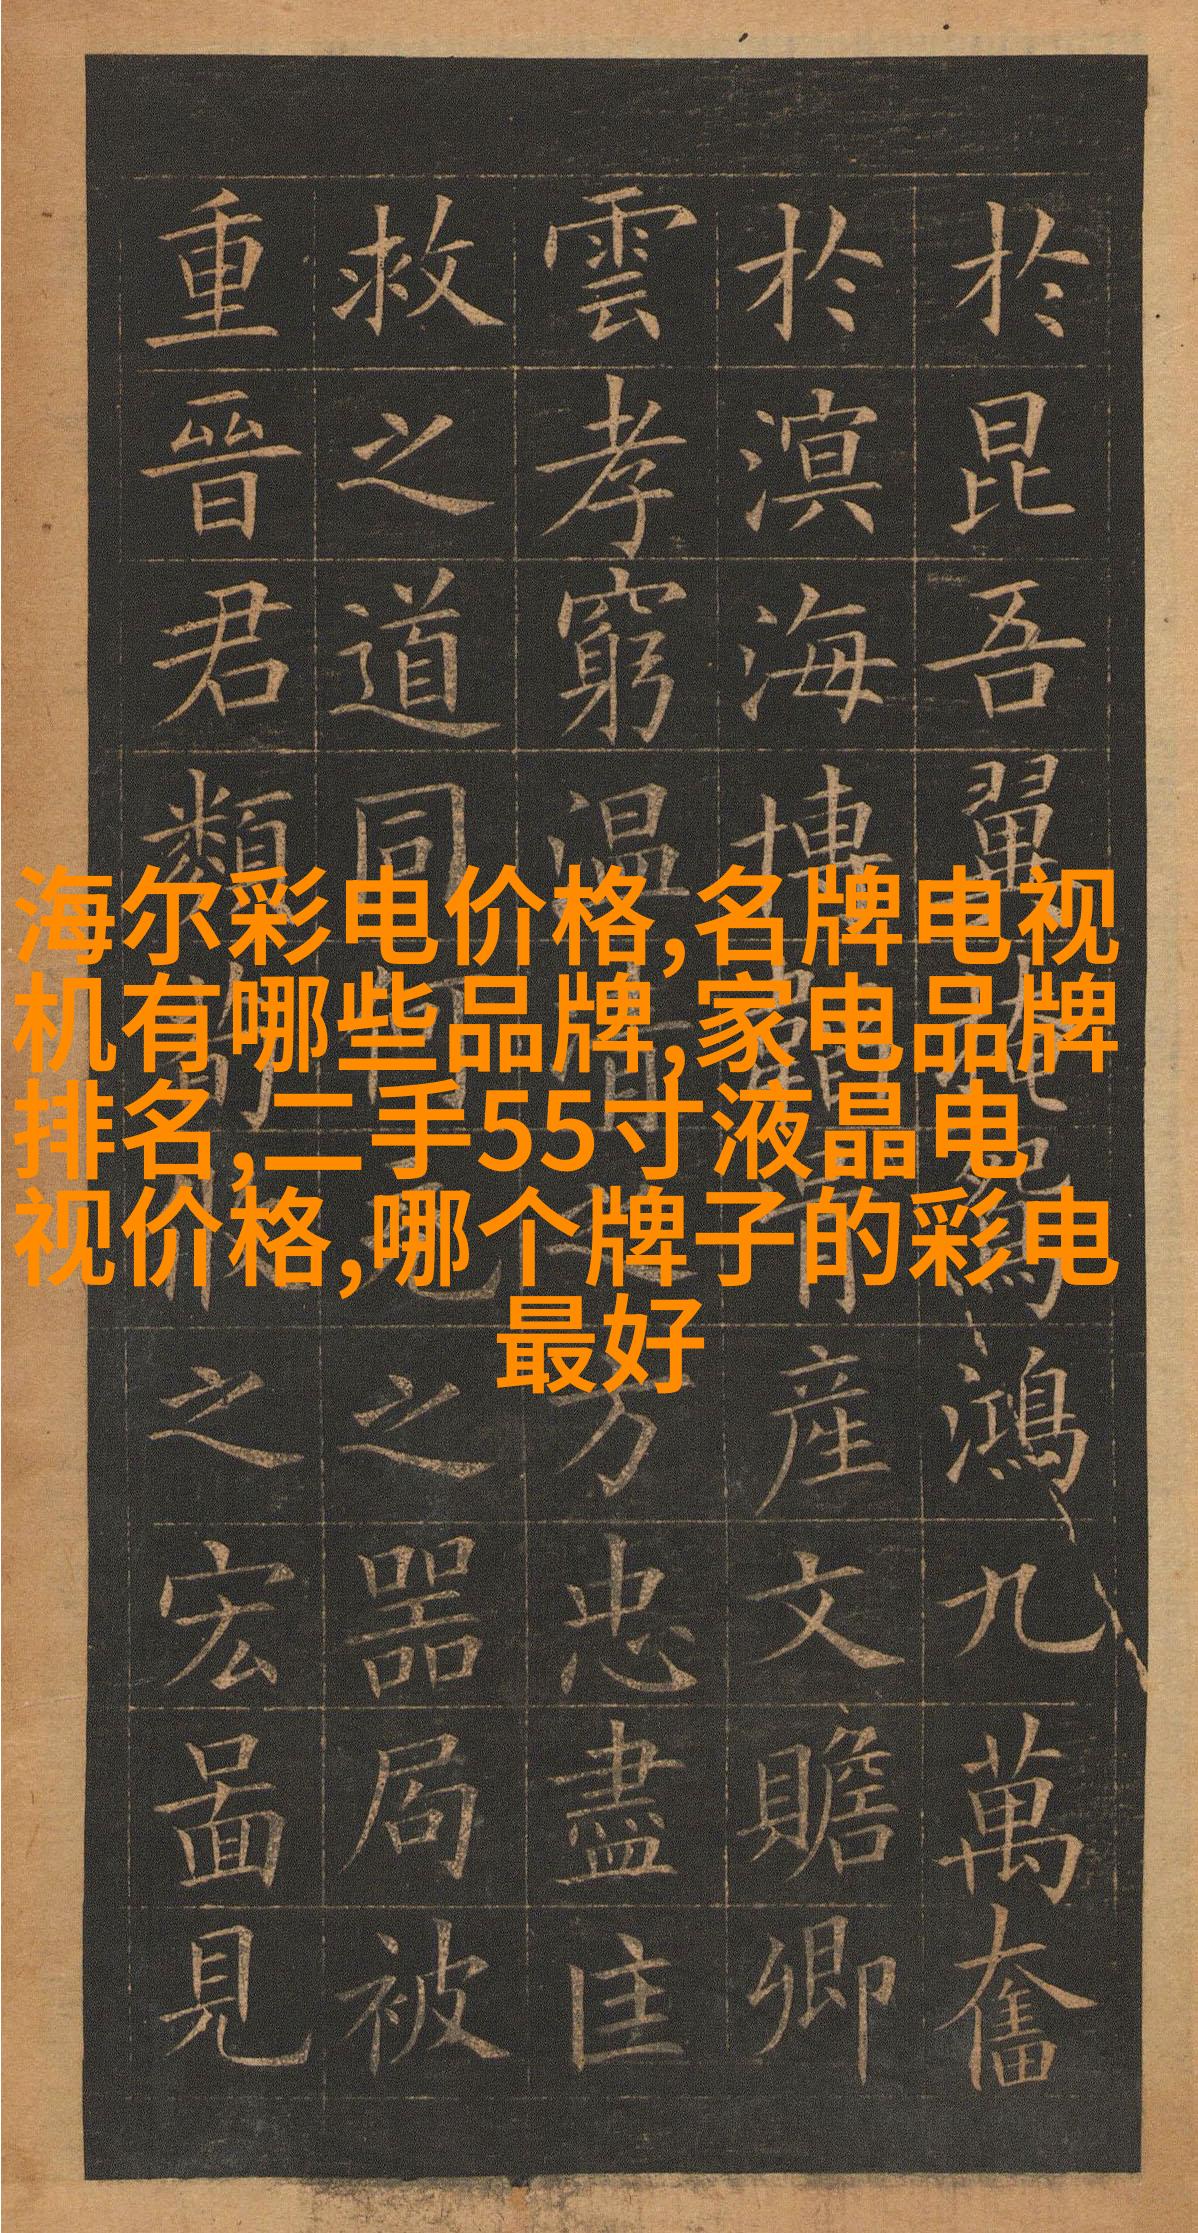 於昆吾翼掩鴻九萬奮
於溟海博產文贍卿
雲孝窮温清之方忠盡匡
救之道同何之器局被
重晉君類之宏啚見
海尔彩电价格,名牌电视
机有哪些品牌,家电品牌
排名,二手55寸液晶电
视价格,哪个牌子的彩电
最好